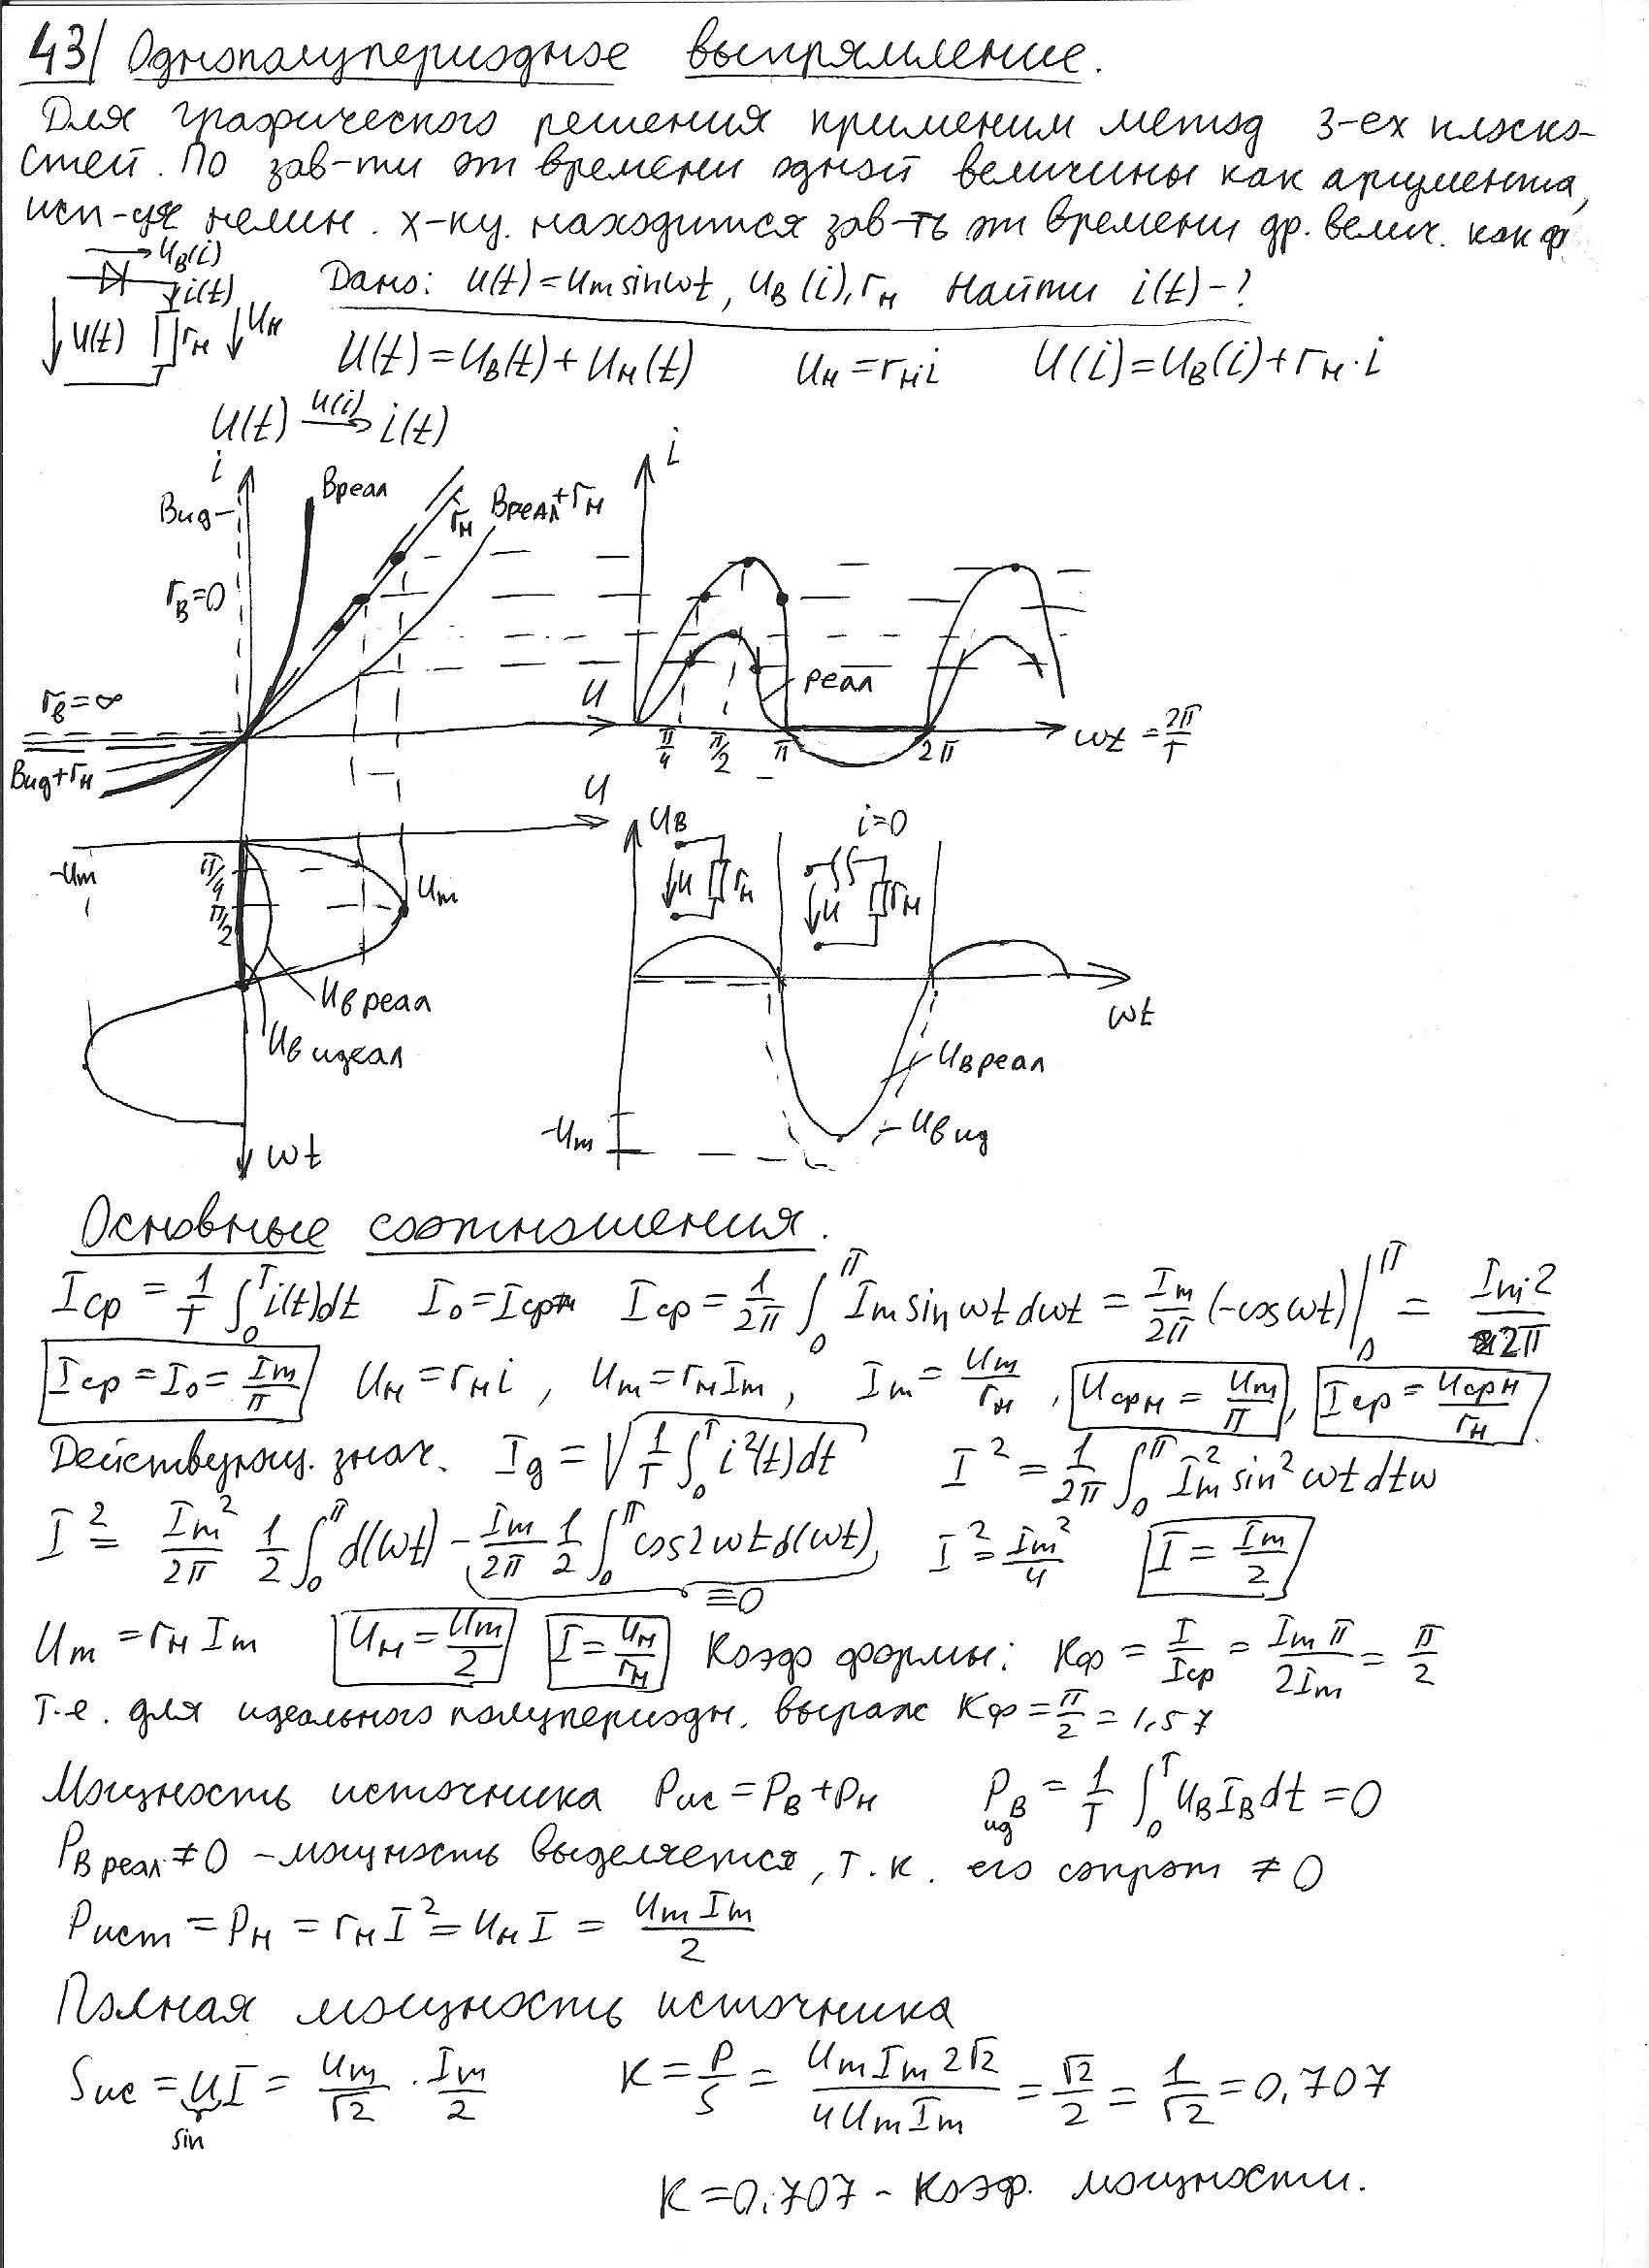 43/ Однополупериодное выпрямление.
Для графического решения применим метод 3-ех плоско-
стей. По зав-ти от времени одной величины как аргумента,
исп-уя нелин. х-ку. находится зав-ть от времени др. велич. как ф
U_B(i)
i(t)
U(t) r_н U_н
Дано: U(t)=U_m sinωt, U_B(i), r_н Найти i(t)-?
U(t)=U_B(t)+U_н(t) U_н=r_н·i U(i)=U_B(i)+r_н·i
U(t) –U(i)→ i(t)
i Вид Вреал r_н Вреал+r_н i
r_B=0
r_в=∞ U реал
Вид+r_н π/4 π/2 π 2π ωt=2π/T
U U_B i=0
-U_m π/4 U_m U r_н U r_н
π/2
U_в реал
U_в идеал ωt
U_в реал
-U_m U_в ид
ωt
Основные соотношения.
I_ср = 1/T ∫_0^T i(t)dt I_0=I_ср I_ср = 1/2π ∫_0^π I_m sin ωt dωt = I_m/2π (-cosωt)|_0^π = I_m·2/2π
I_ср=I_0=I_m/π U_н=r_н i, U_m=r_н I_m, I_m=U_m/r_н, U_срн=U_m/π, I_ср=U_срн/r_н.
Действующ. знач. I_д=√(1/T ∫_0^T i²(t)dt) I²=1/2π ∫_0^π I_m² sin² ωt dtω
I²= I_m²/2π 1/2 ∫_0^π d(ωt) - I_m/2π 1/2 ∫_0^π cos2ωt d(ωt), ≡0 I²=I_m²/4 I=I_m/2
U_m=r_н I_m U_н=U_m/2 I=U_н/r_н Коэф формы: Кф=I/I_ср=I_m π/2I_m=π/2
т.е. для идеального полупериодн. выраж Кф=π/2=1,57
Мощность источника P_ис=P_B+P_н P_B ид=1/T ∫_0^T U_B I_B dt=0
P_B реал≠0 -мощность выделяется, т.к. его сопрот ≠0
P_ист=P_н=r_н I²=U_н I=U_m I_m/2
Полная мощность источника
S_ис=U I=U_m/√2·I_m/2 K=P/S=U_m I_m 2√2/4U_m I_m=√2/2=1/√2=0,707
sin
K=0,707 - коэф. мощности.